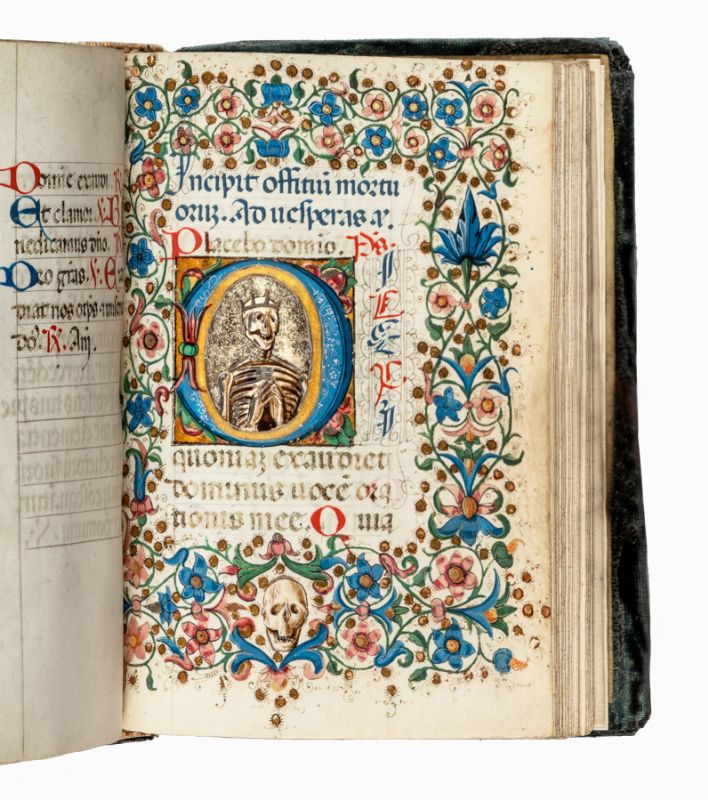 Domīe exaudi. R.
Et clamor. V. B
nedicamus dño. R
Deo grãs. V.
diat nos
R. Am.
Incipit offitiũ mortu
oruʒ. Ad uesperas añ.
Placebo domĩo. Ps.
DILEXI
quoniaʒ exaudiet
dominus uocē ora
tionis mee. Quia